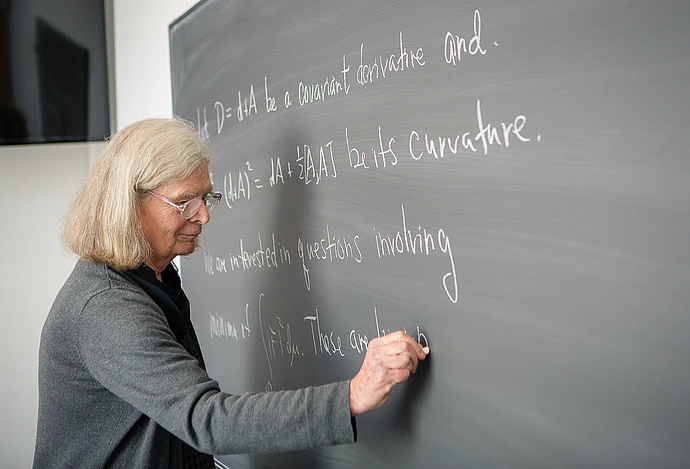 let D = d+A be a covariant derivative and.
(d+A)² = dA + ½[A,A] be its curvature.
We are interested in questions involving
minima of ∫ dμ. These are